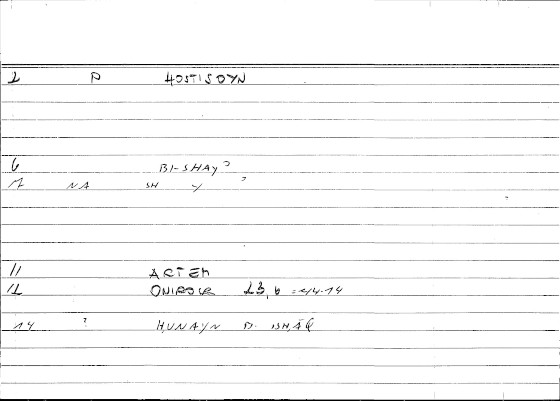 2 P HOSTISOYN
6 BI-SHAY?
NA SH Y ?
?
11 ARTEM
12 ONIROCR 23,6 =44.14
14 ? HUNAYN B. ISHĀQ